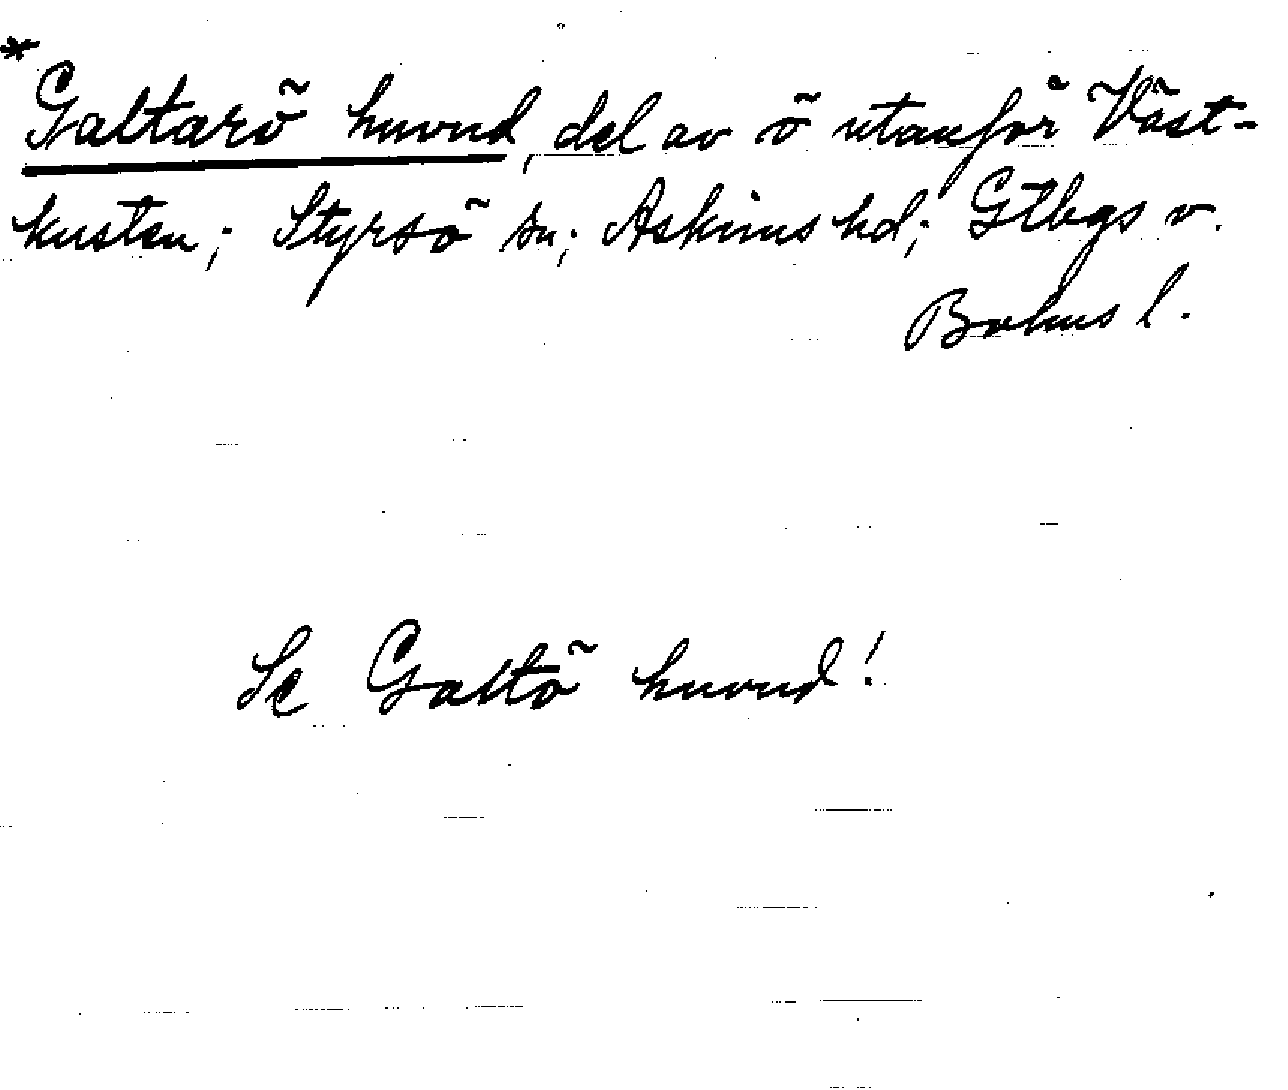 *Galtarö huvud, del av ö utanför Väst-
kusten; Styrsö sn; Askims hd; Gtbgs o.
Bohus l.
Se Galtö huvud!